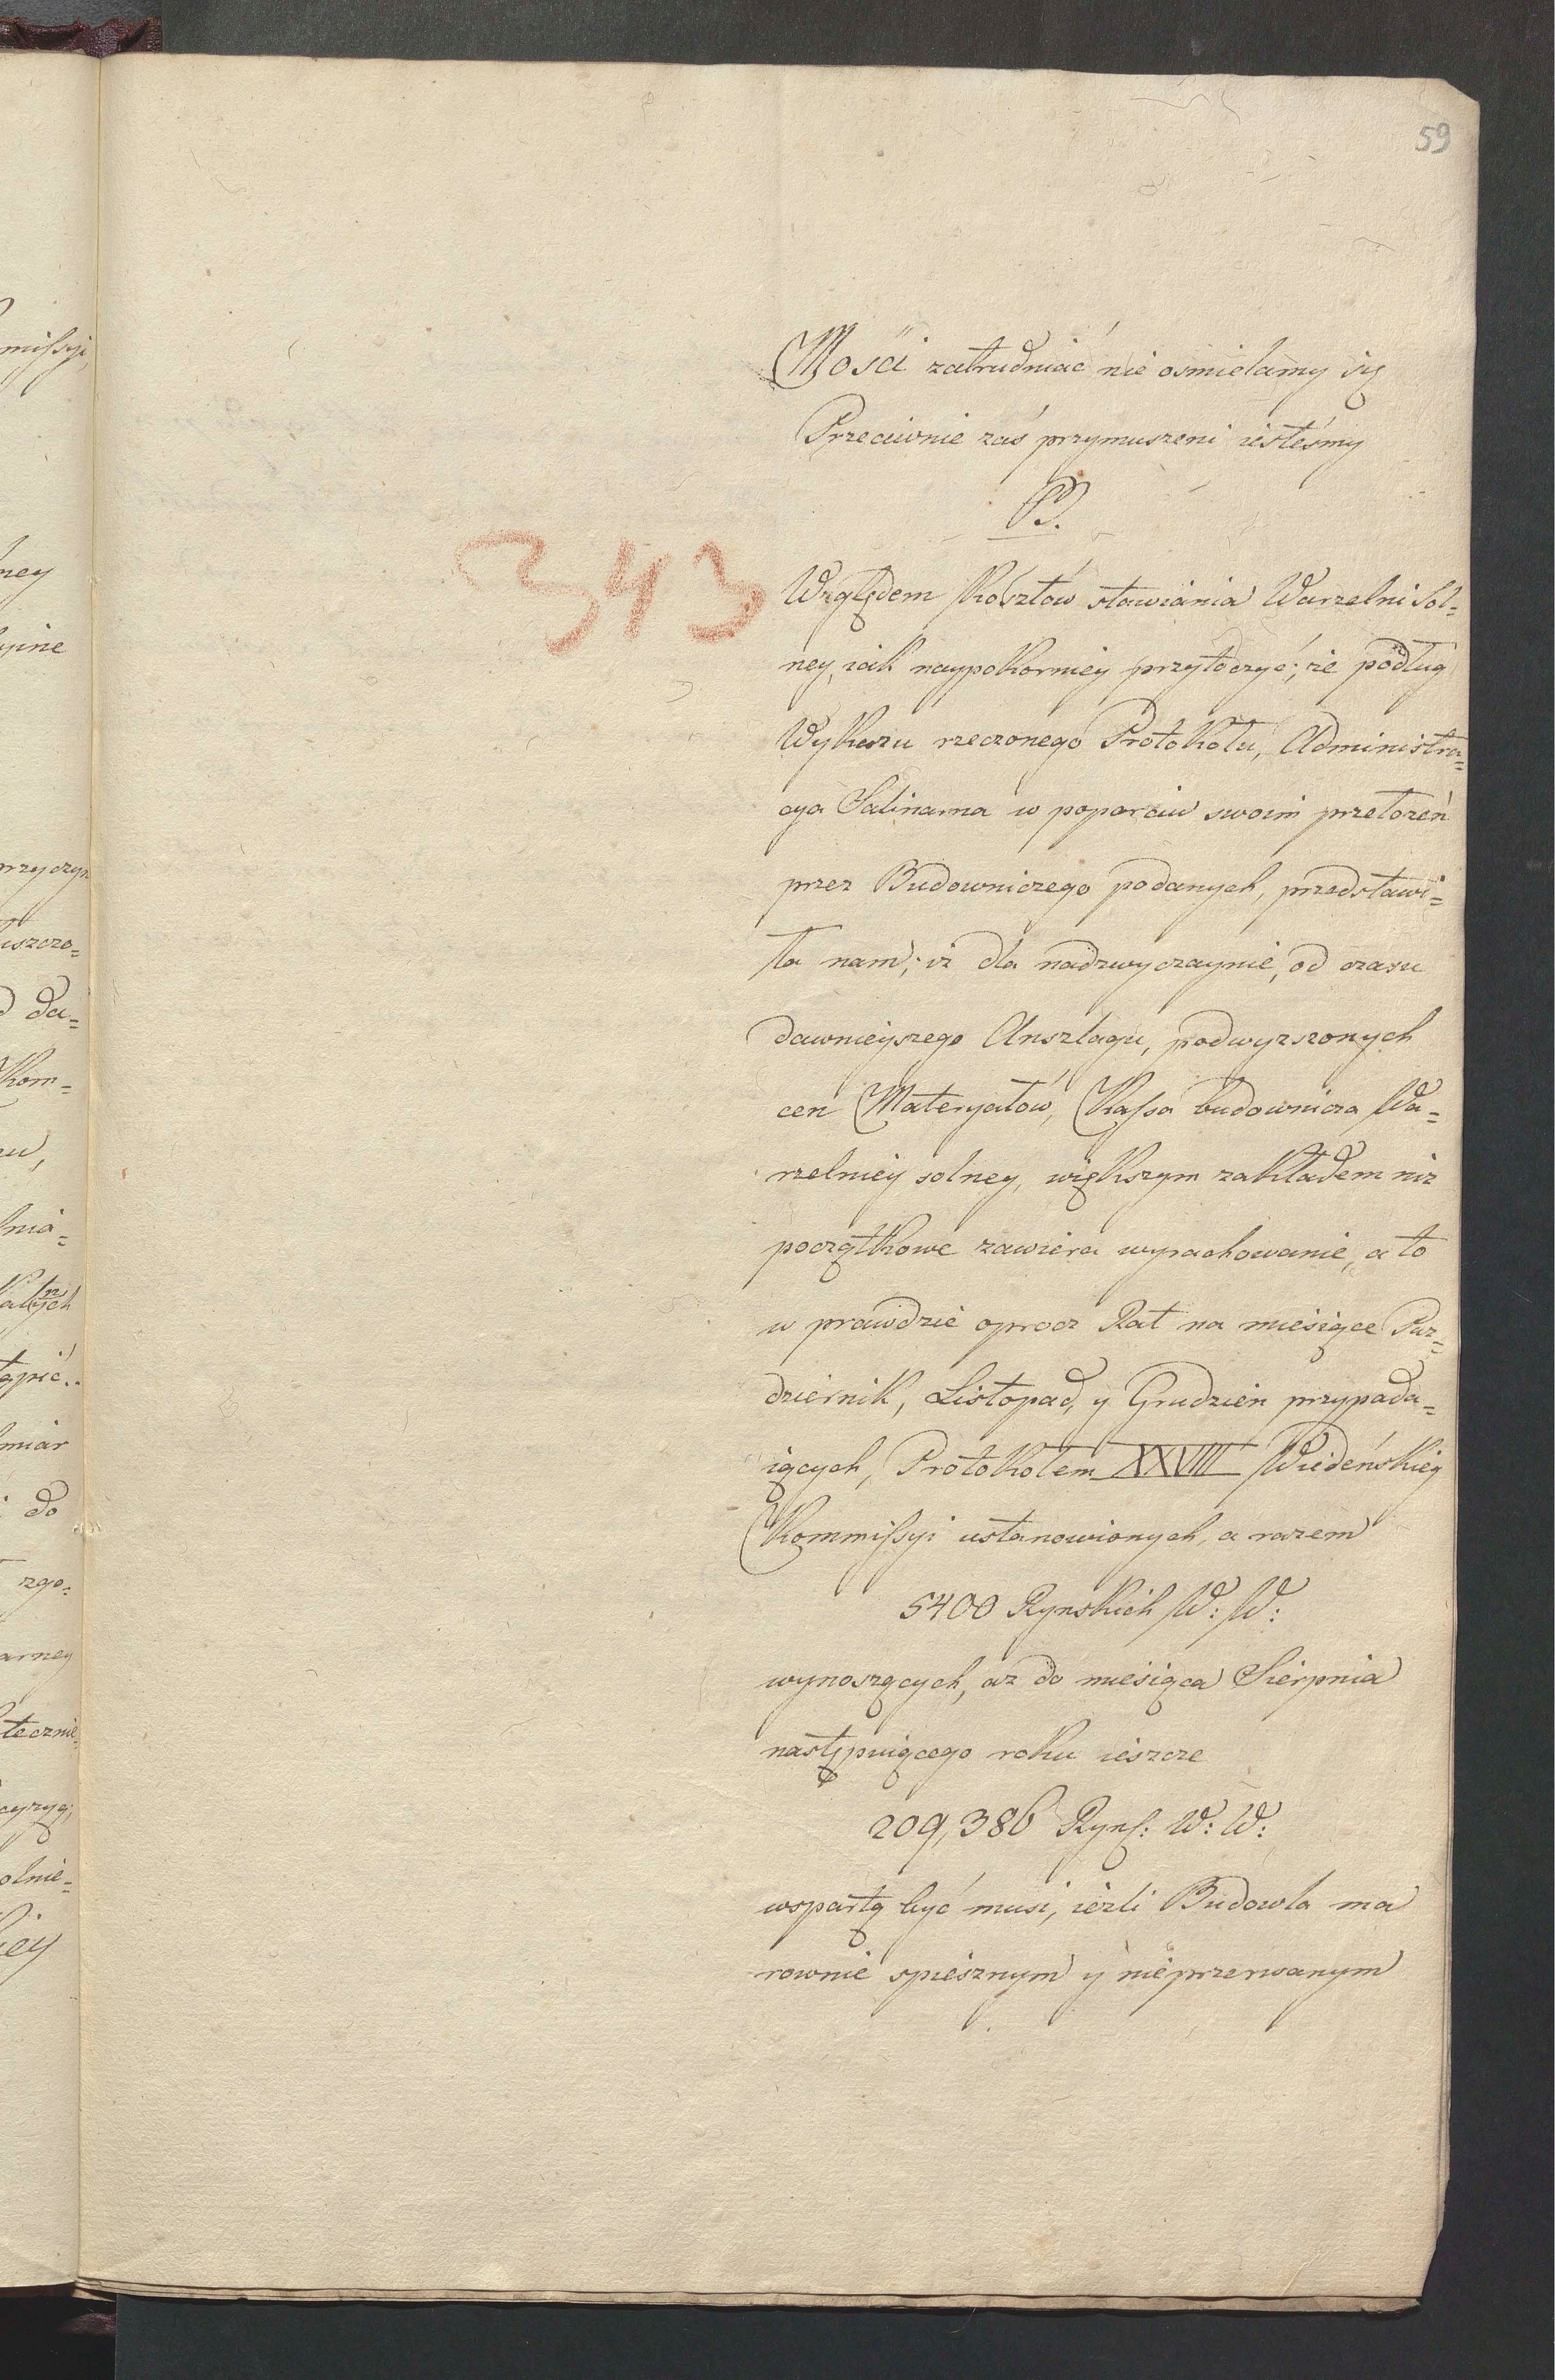 59
Mości zatrudniać nie osmielamy się
Przeciwnie zaś przymuszeni iesteśmy
B.
343
Względem Kosztów stawiania Warzelni Sol=
ney, iak naypokorniey przytoczyć; że podług
Wykazu rzeczonego Protokołu, Administra=
cya Salinarna w poparciu swoim przełożeń
przez Budowniczego podanych, przedstawi=
ła nam; iż dla nadzwyczaynie, od czasu
dawnieyszego Anszlagu, podwyzszonych
cen Materyałów, Kassa budownicza Wa=
rzelniey solney, większym zakładem niz
początkowe zawiera wyrachowanie, a to
w prawdzie oprocz Rat na miesiące Paz=
dziernik, Listopad, y Grudzien przypada=
iących, Protokołem XXVIII Wiedeńskiey
Kommissyi ustanowionych, a razem
5400 Rynskich W: W:
wynoszących, az do miesiąca Sierpnia
następuiącego roku ieszcze
209,386 Rynſ: W: W:
wspartą być musi, ieżli Budowla ma
rownie spiesznym y nieprzerwanym